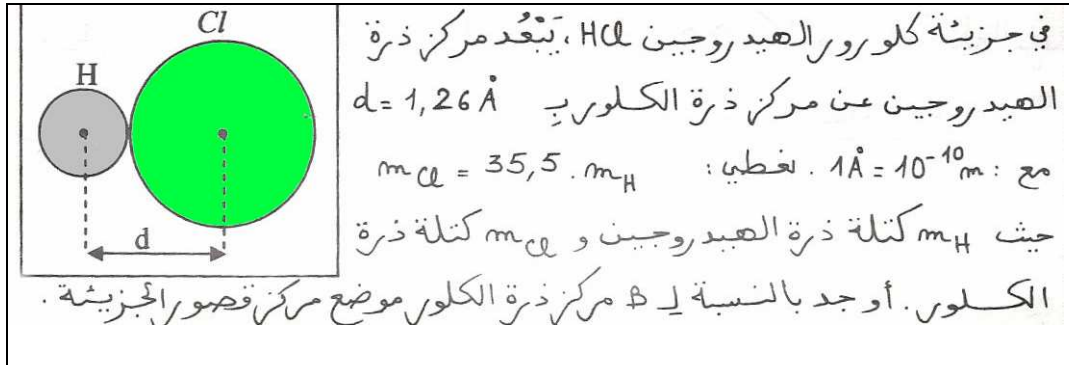 Cl
H
d
في جزيئة كلورور الهيدروجين HCl ، يَبْعُد مركز ذرة
الهيدروجين عن مركز ذرة الكلور بِ d = 1,26 Å
مع : 1Å = 10⁻¹⁰m . نعطي : m_Cl = 35,5 . m_H
حيث m_H كتلة ذرة الهيدروجين و m_Cl كتلة ذرة
الكلور . أوجد بالنسبة لِ B مركز ذرة الكلور موضع مركز قصور الجزيئة .